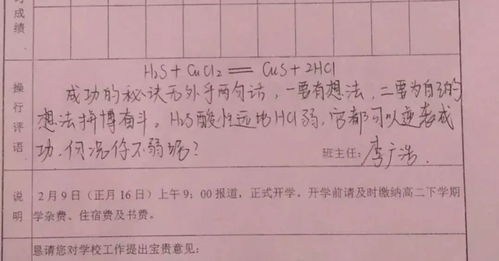 成绩
操行评语
H₂S + CuCl₂ == CuS + 2HCl
成功的秘诀无外乎两句话，一要有想法，二要为自己的
想法拼博奋斗。H₂S酸性远比HCl弱，它都可以逆袭成
功，何况你不弱呢？
班主任：李广浩
说明
2月9日（正月16日）上午9：00报道，正式开学。开学前请及时缴纳高二下学期
学杂费、住宿费及书费。
恳请您对学校工作提出宝贵意见：